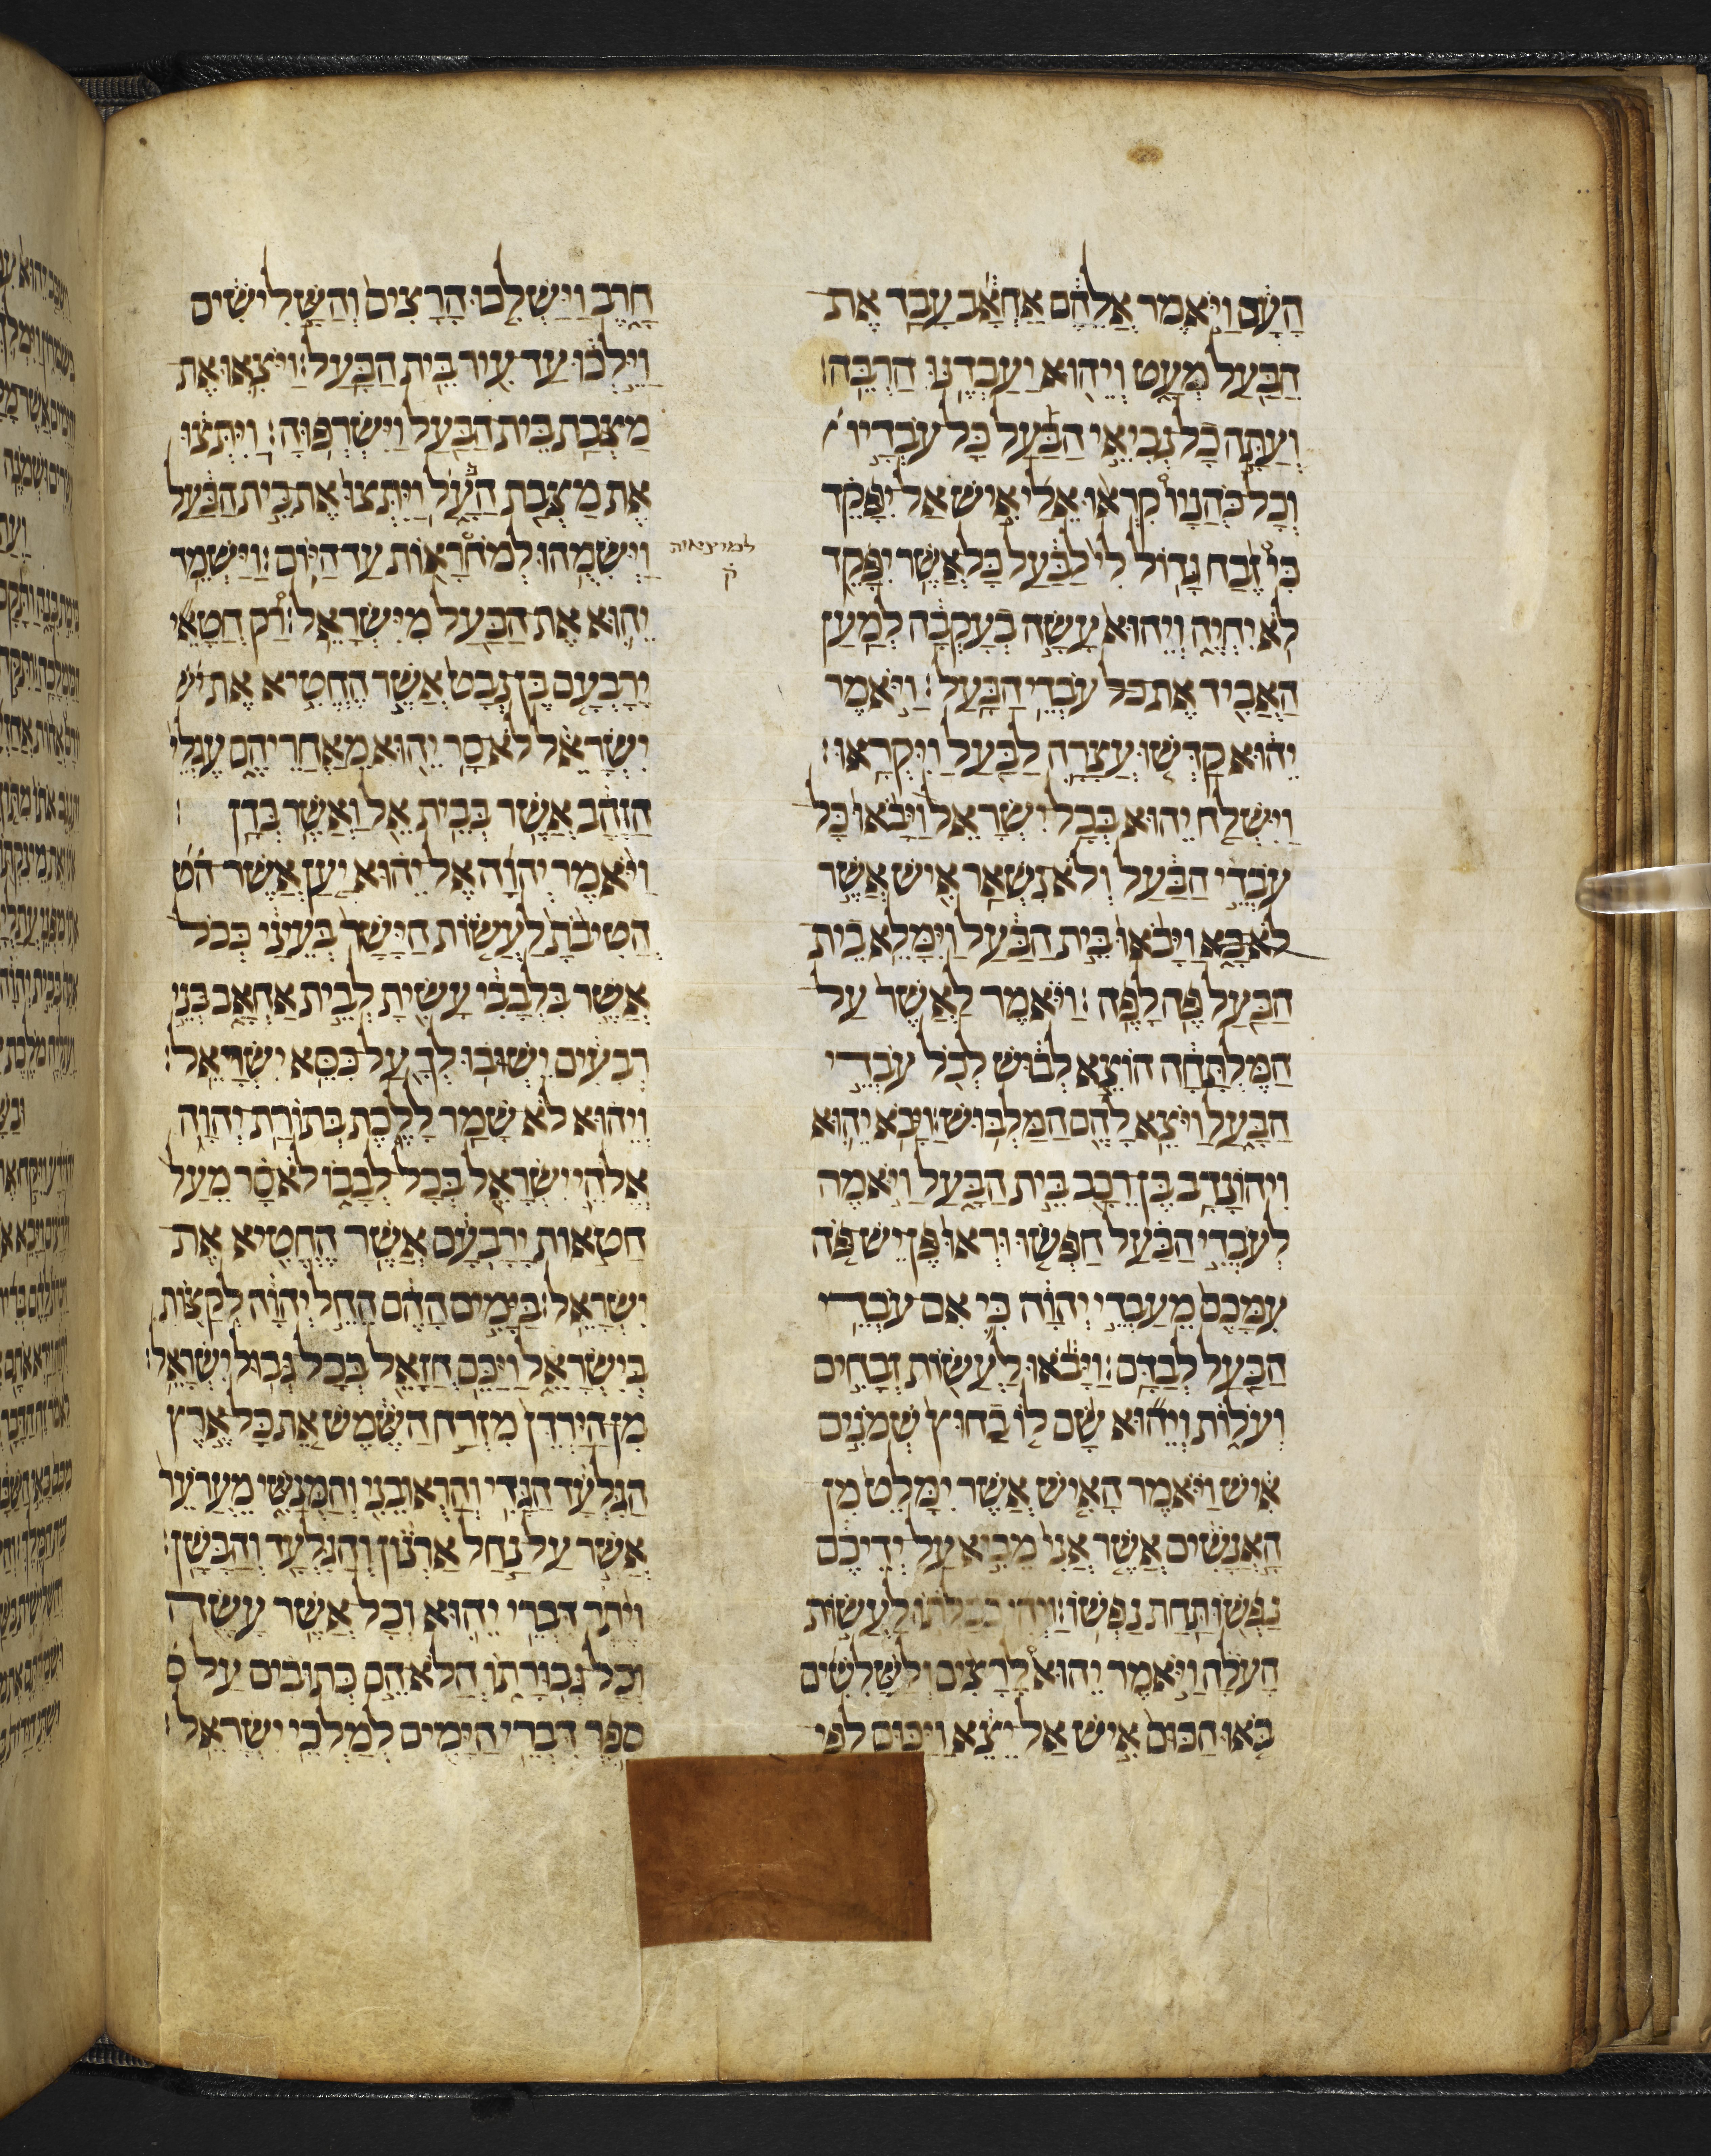 הָעָם וַיֹּאמֶר אֲלֵהֶם אַחְאָב עָבַד אֶת
הַבַּעַל מְעָט וְיֵהוּא יַעַבְדֶנּוּ הַרְבֵּה׃
וְעַתָּה כָל נְבִיאֵי הַבַּעַל כָּל עֹבְדָיו
וְכָל כֹּהֲנָיו קִרְאוּ אֵלַי אִישׁ אַל יִפָּקֵד
כִּי זֶבַח גָּדוֹל לִי לַבַּעַל כָּל אֲשֶׁר יִפָּקֵד
לֹא יִחְיֶה וְיֵהוּא עָשָׂה בְעָקְבָּה לְמַעַן
הַאֲבִיד אֶת כל עֹבְדֵי הַבָּעַל׃ וַיֹּאמֶר
יֵהוּא קַדְּשׁוּ עֲצָרָה לַבַּעַל וַיִּקְרָאוּ׃
וַיִּשְׁלַח יֵהוּא בְּכָל יִשְׂרָאֵל וַיָּבֹאוּ כָּל
עֹבְדֵי הַבַּעַל וְלֹא נִשְׁאַר אִישׁ אֲשֶׁר
לֹא בָא וַיָּבֹאוּ בֵּית הַבַּעַל וַיִּמָּלֵא בֵית
הַבַּעַל פֶּה לָפֶה׃ וַיֹּאמֶר לַאֲשֶׁר עַל
הַמֶּלְתָּחָה הוֹצֵא לְבוּשׁ לְכֹל עֹבְדֵי
הַבָּעַל וַיֹּצֵא לָהֶם הַמַּלְבּוּשׁ׃ וַיָּבֹא יֵהוּא
וִיהוֹנָדָב בֶּן רֵכָב בֵּית הַבָּעַל וַיֹּאמֶר
לְעֹבְדֵי הַבַּעַל חַפְּשׂוּ וּרְאוּ פֶּן יֶשׁ פֹּה
עִמָּכֶם מֵעַבְדֵי יְהוָה כִּי אִם עֹבְדֵי
הַבַּעַל לְבַדָּם׃ וַיָּבֹאוּ לַעֲשׂוֹת זְבָחִים
וְעֹלוֹת וְיֵהוּא שָׂם לוֹ בַחוּץ שְׁמֹנִים
אִישׁ וַיֹּאמֶר הָאִישׁ אֲשֶׁר יִמָּלֵט מִן
הָאֲנָשִׁים אֲשֶׁר אֲנִי מֵבִיא עַל יְדֵיכֶם
נַפְשׁוֹ תַּחַת נַפְשׁוֹ׃ וַיְהִי כְּכַלֹּתוֹ לַעֲשׂוֹת
הָעֹלָה וַיֹּאמֶר יֵהוּא לָרָצִים וְלַשָּׁלִשִׁים
בֹּאוּ הַכּוּם אִישׁ אַל יֵצֵא וַיַּכּוּם לְפִי
חָרֶב וַיַּשְׁלִכוּ הָרָצִים וְהַשָּׁלִישִׁים
וַיֵּלְכוּ עַד עִיר בֵּית הַבָּעַל׃ וַיֹּצִאוּ אֶת
מַצְּבַת בֵּית הַבַּעַל וַיִּשְׂרְפוּהָ׃ וַיִּתְּצוּ
אֶת מַצְּבַת הַבָּעַל וַיִּתְּצוּ אֶת בֵּית הַבַּעַל
וַיְשִׂמֻהוּ לְמֹחֳרָאוֹת עַד הַיּוֹם׃ וַיַּשְׁמֵד
למוצאות
ק
יֵהוּא אֶת הַבַּעַל מִיִּשְׂרָאֵל׃ רַק חֲטָאֵי
יָרָבְעָם בֶּן נְבָט אֲשֶׁר הֶחֱטִיא אֶת יש
יִשְׂרָאֵל לֹא סָר יֵהוּא מֵאַחֲרֵיהֶם עֶגְלֵי
הַזָּהָב אֲשֶׁר בְּבֵית אֵל וַאֲשֶׁר בְּדָן׃
וַיֹּאמֶר יְהוָה אֶל יֵהוּא יַעַן אֲשֶׁר הט
הֱטִיבֹתָ לַעֲשׂוֹת הַיָּשָׁר בְּעֵינַי כְּכֹל
אֲשֶׁר בִּלְבָבִי עָשִׂיתָ לְבֵית אַחְאָב בְּנֵי
רְבִעִים יֵשְׁבוּ לְךָ עַל כִּסֵּא יִשְׂרָאֵל׃
וְיֵהוּא לֹא שָׁמַר לָלֶכֶת בְּתוֹרַת יְהוָה
אֱלֹהֵי יִשְׂרָאֵל בְּכָל לְבָבוֹ לֹא סָר מֵעַל
חַטֹּאות יָרָבְעָם אֲשֶׁר הֶחֱטִיא אֶת
יִשְׂרָאֵל׃ בַּיָּמִים הָהֵם הֵחֵל יְהוָה לְקַצּוֹת
בְּיִשְׂרָאֵל וַיַּכֵּם חֲזָאֵל בְּכָל גְּבוּל יִשְׂרָאֵל׃
מִן הַיַּרְדֵּן מִזְרַח הַשֶּׁמֶשׁ אֵת כָּל אֶרֶץ
הַגִּלְעָד הַגָּדִי וְהָרְאוּבֵנִי וְהַמְנַשִּׁי מֵעֲרֹעֵר
אֲשֶׁר עַל נַחַל אַרְנוֹן וְהַגִּלְעָד וְהַבָּשָׁן׃
וְיֶתֶר דִּבְרֵי יֵהוּא וְכָל אֲשֶׁר עָשָׂה
וְכָל גְּבוּרָתוֹ הֲלֹא הֵם כְּתוּבִים עַל ס
סֵפֶר דִּבְרֵי הַיָּמִים לְמַלְכֵי יִשְׂרָאֵל׃